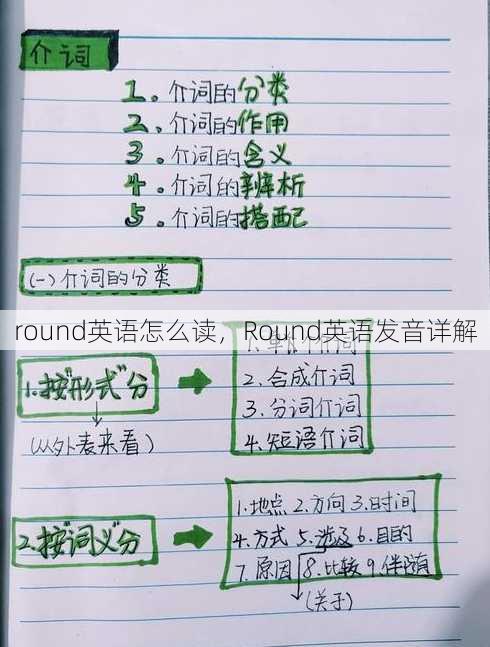 介词
1。介词的分类
2、介词的作用
3。介词的含义
4。介词的辨析
5。介词的搭配
(一)介词的分类
round英语怎么读，Round英语发音详解
1.按"形式"分
2.合成介词
3.分词介词
4.短语介词
(从外表来看)
2.按"词义"分
1.地点 2.方向 3.时间
4.方式 5.涉及 6.目的
7.原因 8.比较 9.伴随
(关于)